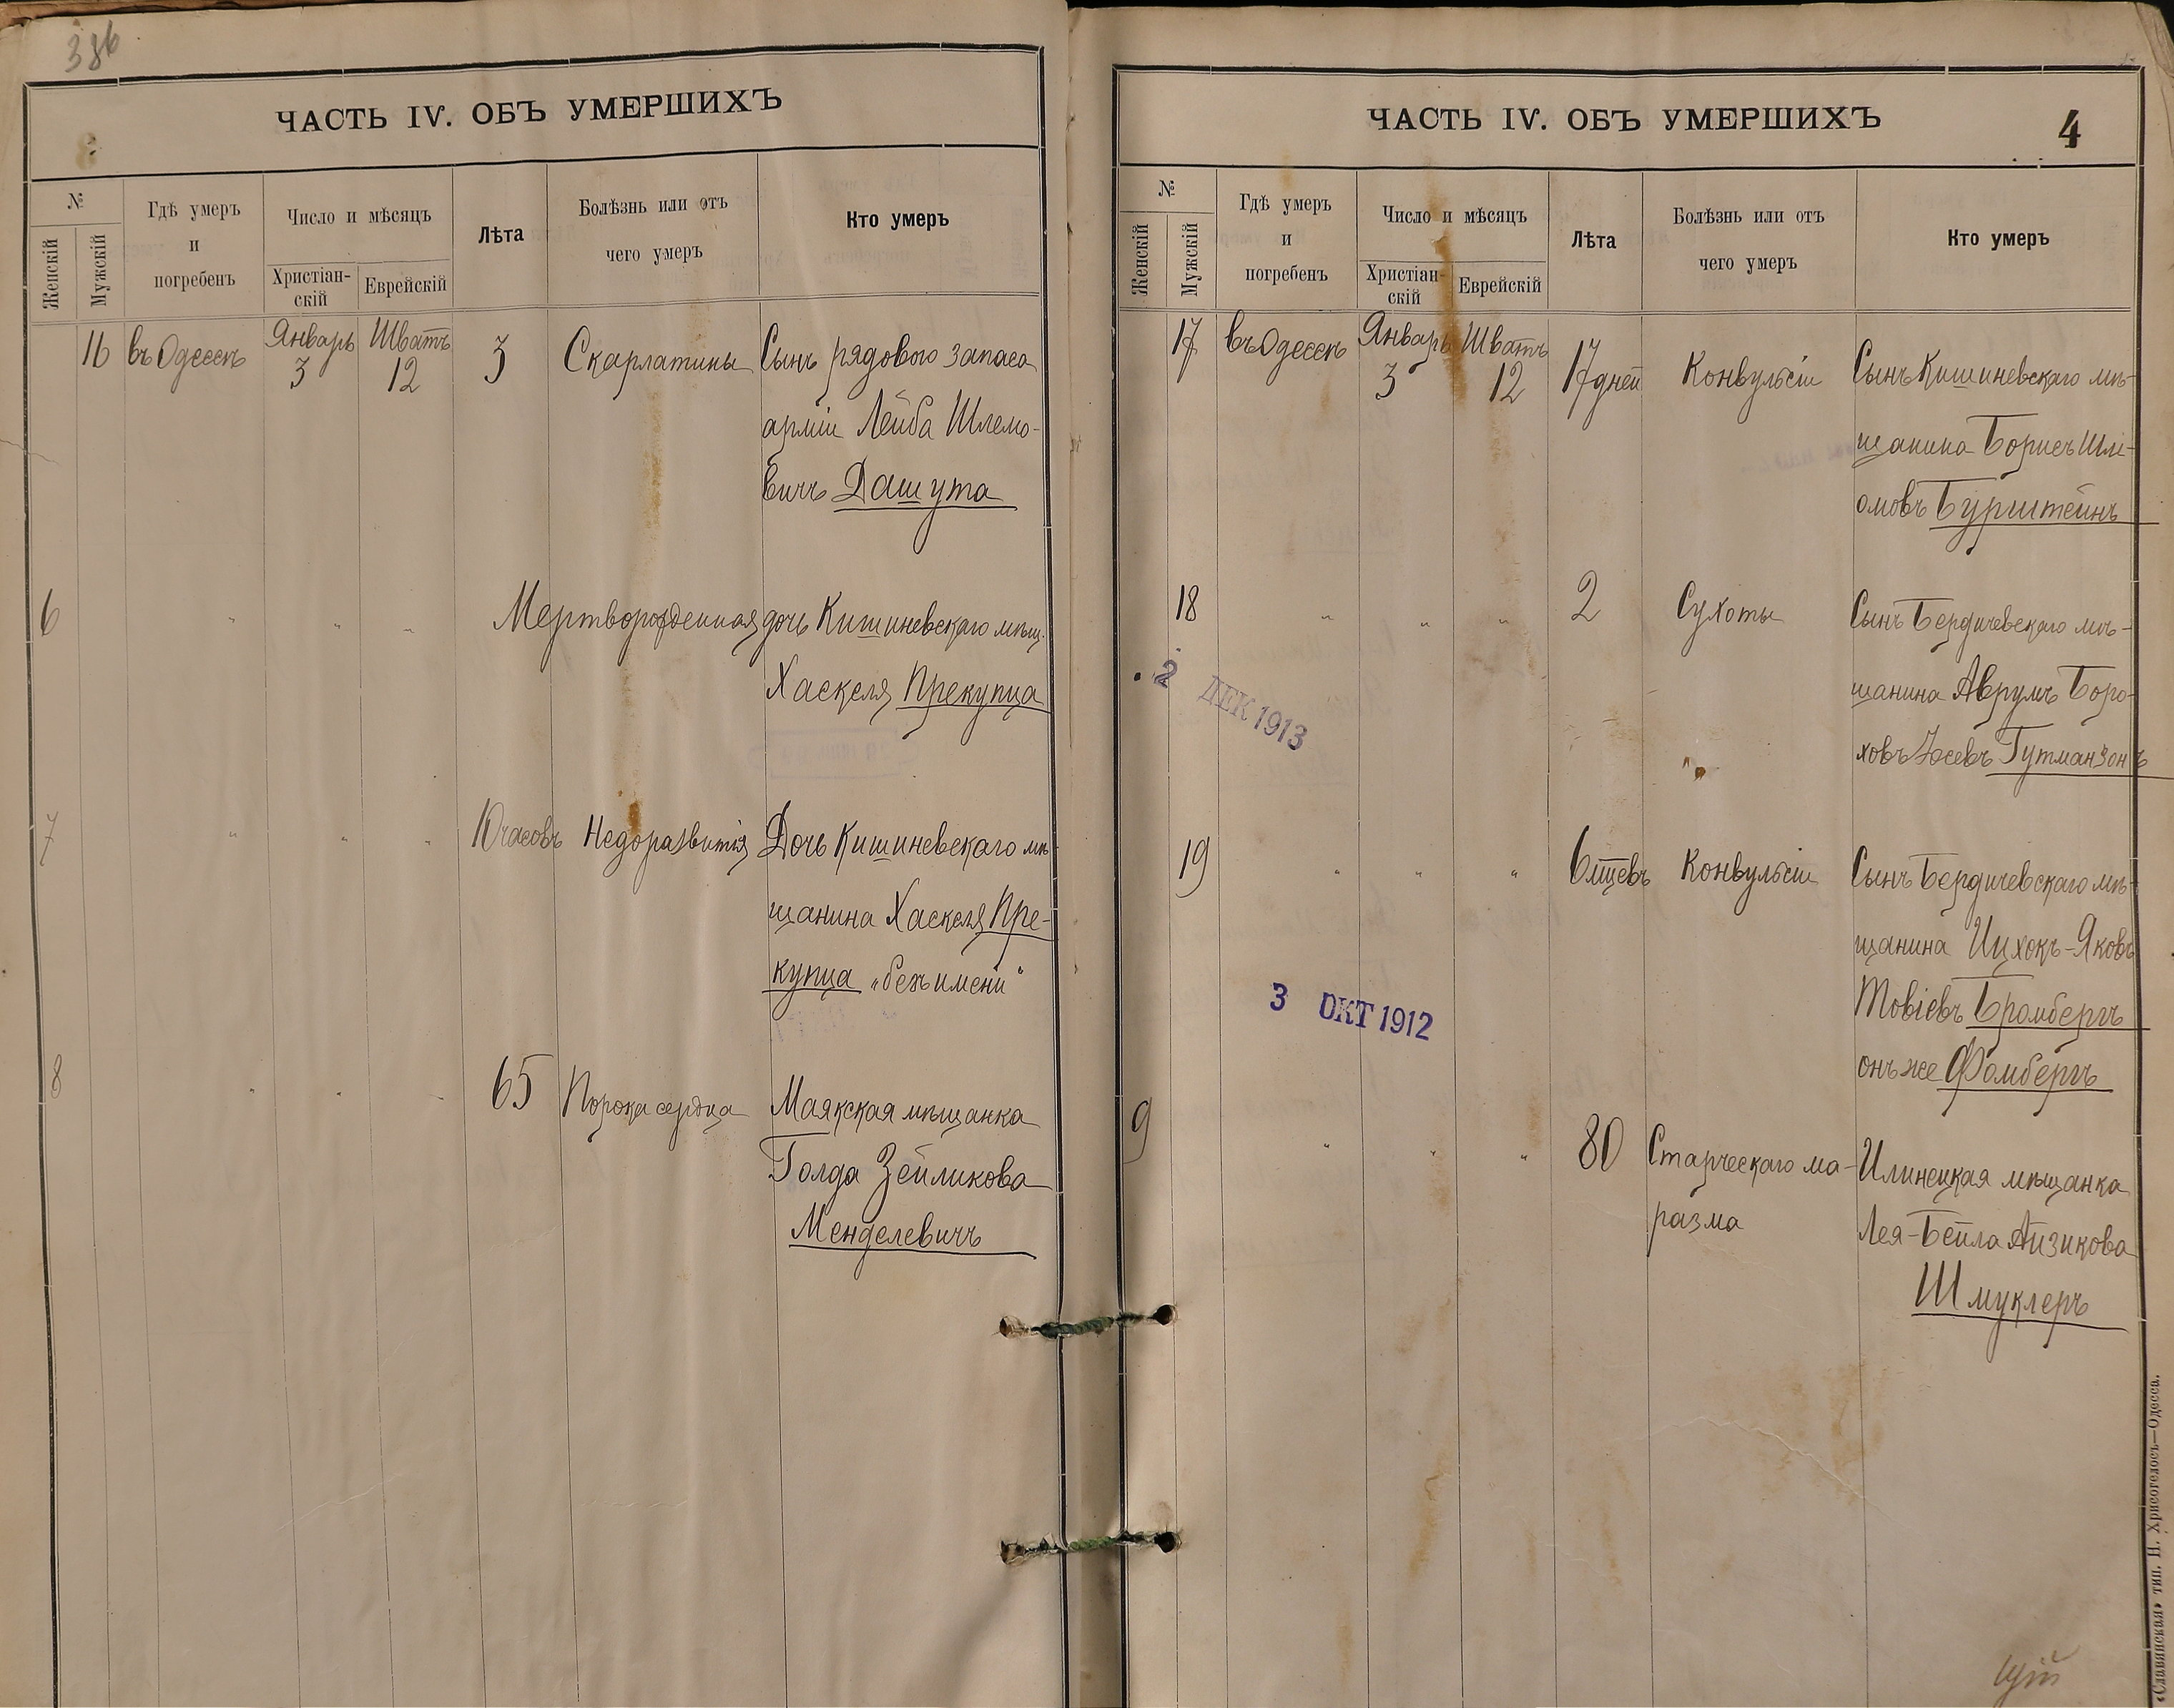 386
ЧАСТЬ IV. ОБЪ УМЕРШИХЪ
№
Женскій
Мужскій
Гдѣ умеръ
и
погребенъ
Число и мѣсяцъ
Христіан-
скій
Еврейскій
Лѣта
Болѣзнь или отъ
чего умеръ
Кто умеръ
16 въ Одессѣ Январь 3 Шватъ 12 3 Скарлатины Сынъ рядового запаса
арміи Лейба Шлемо-
вичъ Дашута
6 " " " Мертворожденная дочь Кишиневскаго мѣщ.
Хаскеля Прекупца
7 " " " 10 часовъ Недоразвитія Дочь Кишиневскаго мѣ-
щанина Хаскеля Пре-
купца „безъ имени"
8 " " " 65 Порока сердца Маякская мѣщанка
Голда Зейликова
Менделевичъ
ЧАСТЬ IV. ОБЪ УМЕРШИХЪ
4
№
Женскій
Мужскій
Гдѣ умеръ
и
погребенъ
Число и мѣсяцъ
Христіан-
скій
Еврейскій
Лѣта
Болѣзнь или отъ
чего умеръ
Кто умеръ
17 въ Одессѣ Январь 3 Шватъ 12 17 дней Конвульсіи Сынъ Кишиневскаго мѣ-
щанина Борисъ Шлі-
омовъ Бурштейнъ
18 " " " 2 Сухоты Сынъ Бердичевскаго мѣ-
щанина Аврумъ Боро-
ховъ Іосевъ Гутманзонъ
2 ДЕК 1913
19 " " " 6 мцевъ Конвульсіи Сынъ Бердичевскаго мѣ-
щанина Ицхокъ-Яковъ
Товіевъ Бромбергъ
онъ же Фомбергъ
3 ОКТ 1912
9 " " " 80 Старческаго ма-
разма
Илинецкая мѣщанка
Лея-Бейла Айзикова
Шмуклеръ
«Славянская» тип. Н. Хрисогелосъ—Одесса.